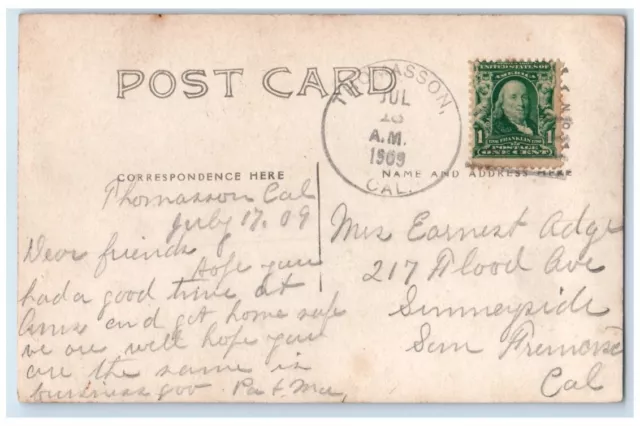 POST CARD
THOMASSON,
JUL
A.M.
1909
CAL.
UNITED STATES OF
AMERICA
1 FRANKLIN 1
POSTAGE
ONE CENT
CORRESPONDENCE HERE
NAME AND ADDRESS HERE
Thomasson Cal
July 17. 09
Dear friends
Hope you
had a good time at
and got home safe
we are well hope you
are the same is
business goo Pa & Ma,
Mrs Earnest Adge
217 Flood Ave
Sunneyside
San
Cal